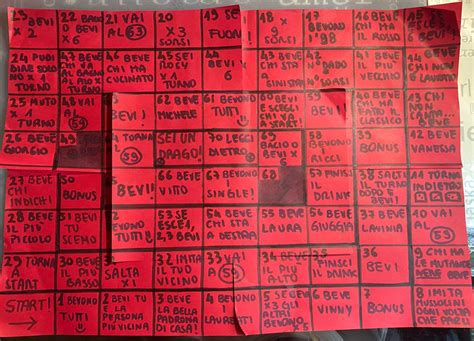 23 BEVI
x 2
22 BACIO
O BEVI
x 6
21 VAI
AL 53
20
x3
SORSI
19 SEI
FUORI
18 x
9
SORSI
17
BEVONO
I '98
16 BEVE
CHI
15
24 PUOI
DIRE SOLO
NO x 1
TURNO
47 BEVE
CHI VA
AL BAGNO
TURNO
46 BEVE
CHI HA
CUCINATO
45 SEI
x 1
TURNO
44 BEVI
x 6
43 BEVE
CHI HAI
A
SINISTRA
42 x
DADO
SORSI
41 BEVE
IL PIÙ
VECCHIO
14 BEVE
CHI NON
LAVORATO
25 MUTO
x 1
TURNO
48 VAI
AL 54
63
BEVI!
62 BEVE
MICHELE
61 BEVONO
TUTTI
60 BEVI E
SCEGLI
CHI VA A
START!
59
BEVI!
40 BEVE
CHI HA
FATTO IL
CLASSICO
13 CHI
NON
CANTA...
BEVE
26 BEVE
GIORGIO
49
64 TORNA
AL 59
SEI UN
DRAGO!
70 LEGGI
DIETRO
69
BACIO O
BEVI x 5
58
BEVONO
I
RICCI
39
BONUS
12 BEVE
VANESSA
27 BEVE
CHI
INDICHI!
50
BONUS
65
BEVI!
66 BEVE
VITO
67 BEVONO
I
SINGLE!
68
57 FINISCI
IL
DRINK
38 SALTI
IL TURNO
DOPO E
BEVI!
11 TORNA
INDIETRO
28 BEVE
IL PIÙ
PICCOLO
51 BEVI
TU
SCEMO
52
BEVONO
TUTTI
53 SE
ESCE 1,
2,3 BEVI
54 BEVE
CHI STA
A DESTRA
55 BEVE
LAURA
56 BEVE
GIUGGIA
37 BEVE
LAVINIA
10 VAI
AL 59
29
TORNA
A
START
30 BEVE
IL PIÙ
BASSO
31
SALTA
x1
32 IMITA
IL TUO
VICINO
33 VAI
AL
59
34 BEVE
IL PIÙ
ALTO
35
FINISCI
IL DRINK
36
BEVI
9 CHI HA
LE MUTANDE
NERE
BEVE
START!
1 BEVONO
TUTTI
2 BEVI TU
E LA
PERSONA
PIÙ VICINA
3 BEVE
LA BELLA
PADRONA
DI CASA!
4 BEVONO
I
LAUREATI
5 SE BEVI
x3 GLI
ALTRI
BEVONO
x5
6 BEVE
VINNY
7
BONUS
8 IMITA
MUSSOLINI
OGNI VOLTA
CHE PARLI